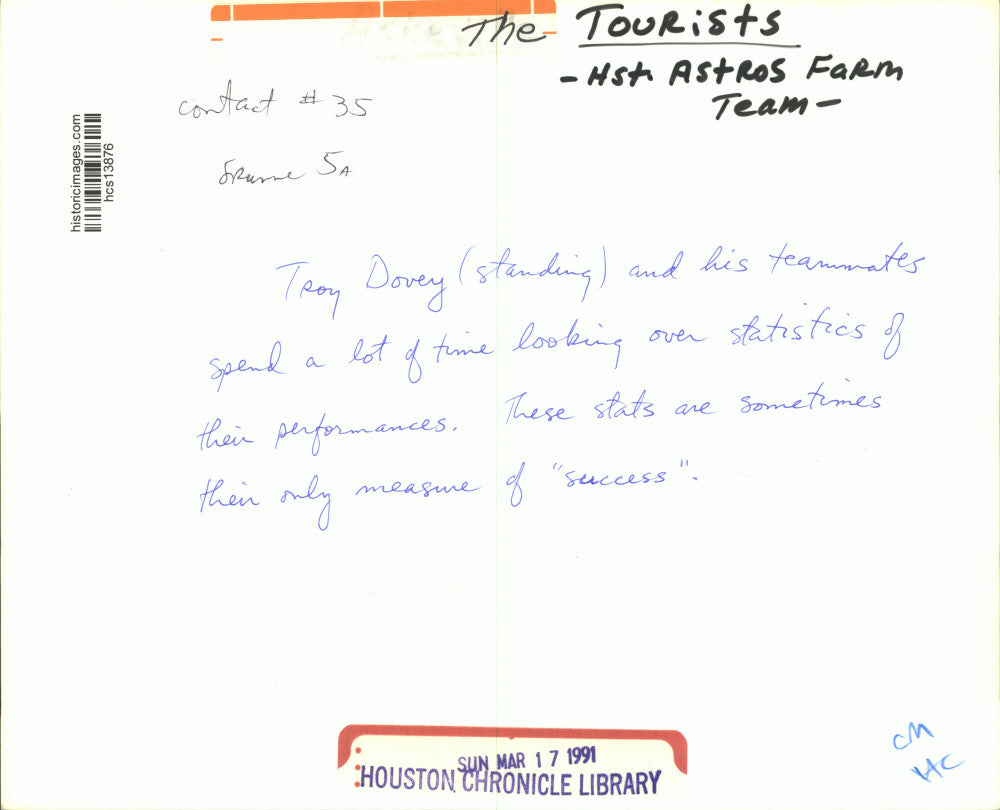 The TOURISTS
- Hst. ASTROS FARM
TEAM -
contact # 35
frame 5A
historicimages.com
hcs13876
Troy Dovey (standing) and his teammates
spend a lot of time looking over statistics of
their performances. These stats are sometimes
their only measure of "success".
SUN MAR 17 1991
HOUSTON CHRONICLE LIBRARY
CM
HC